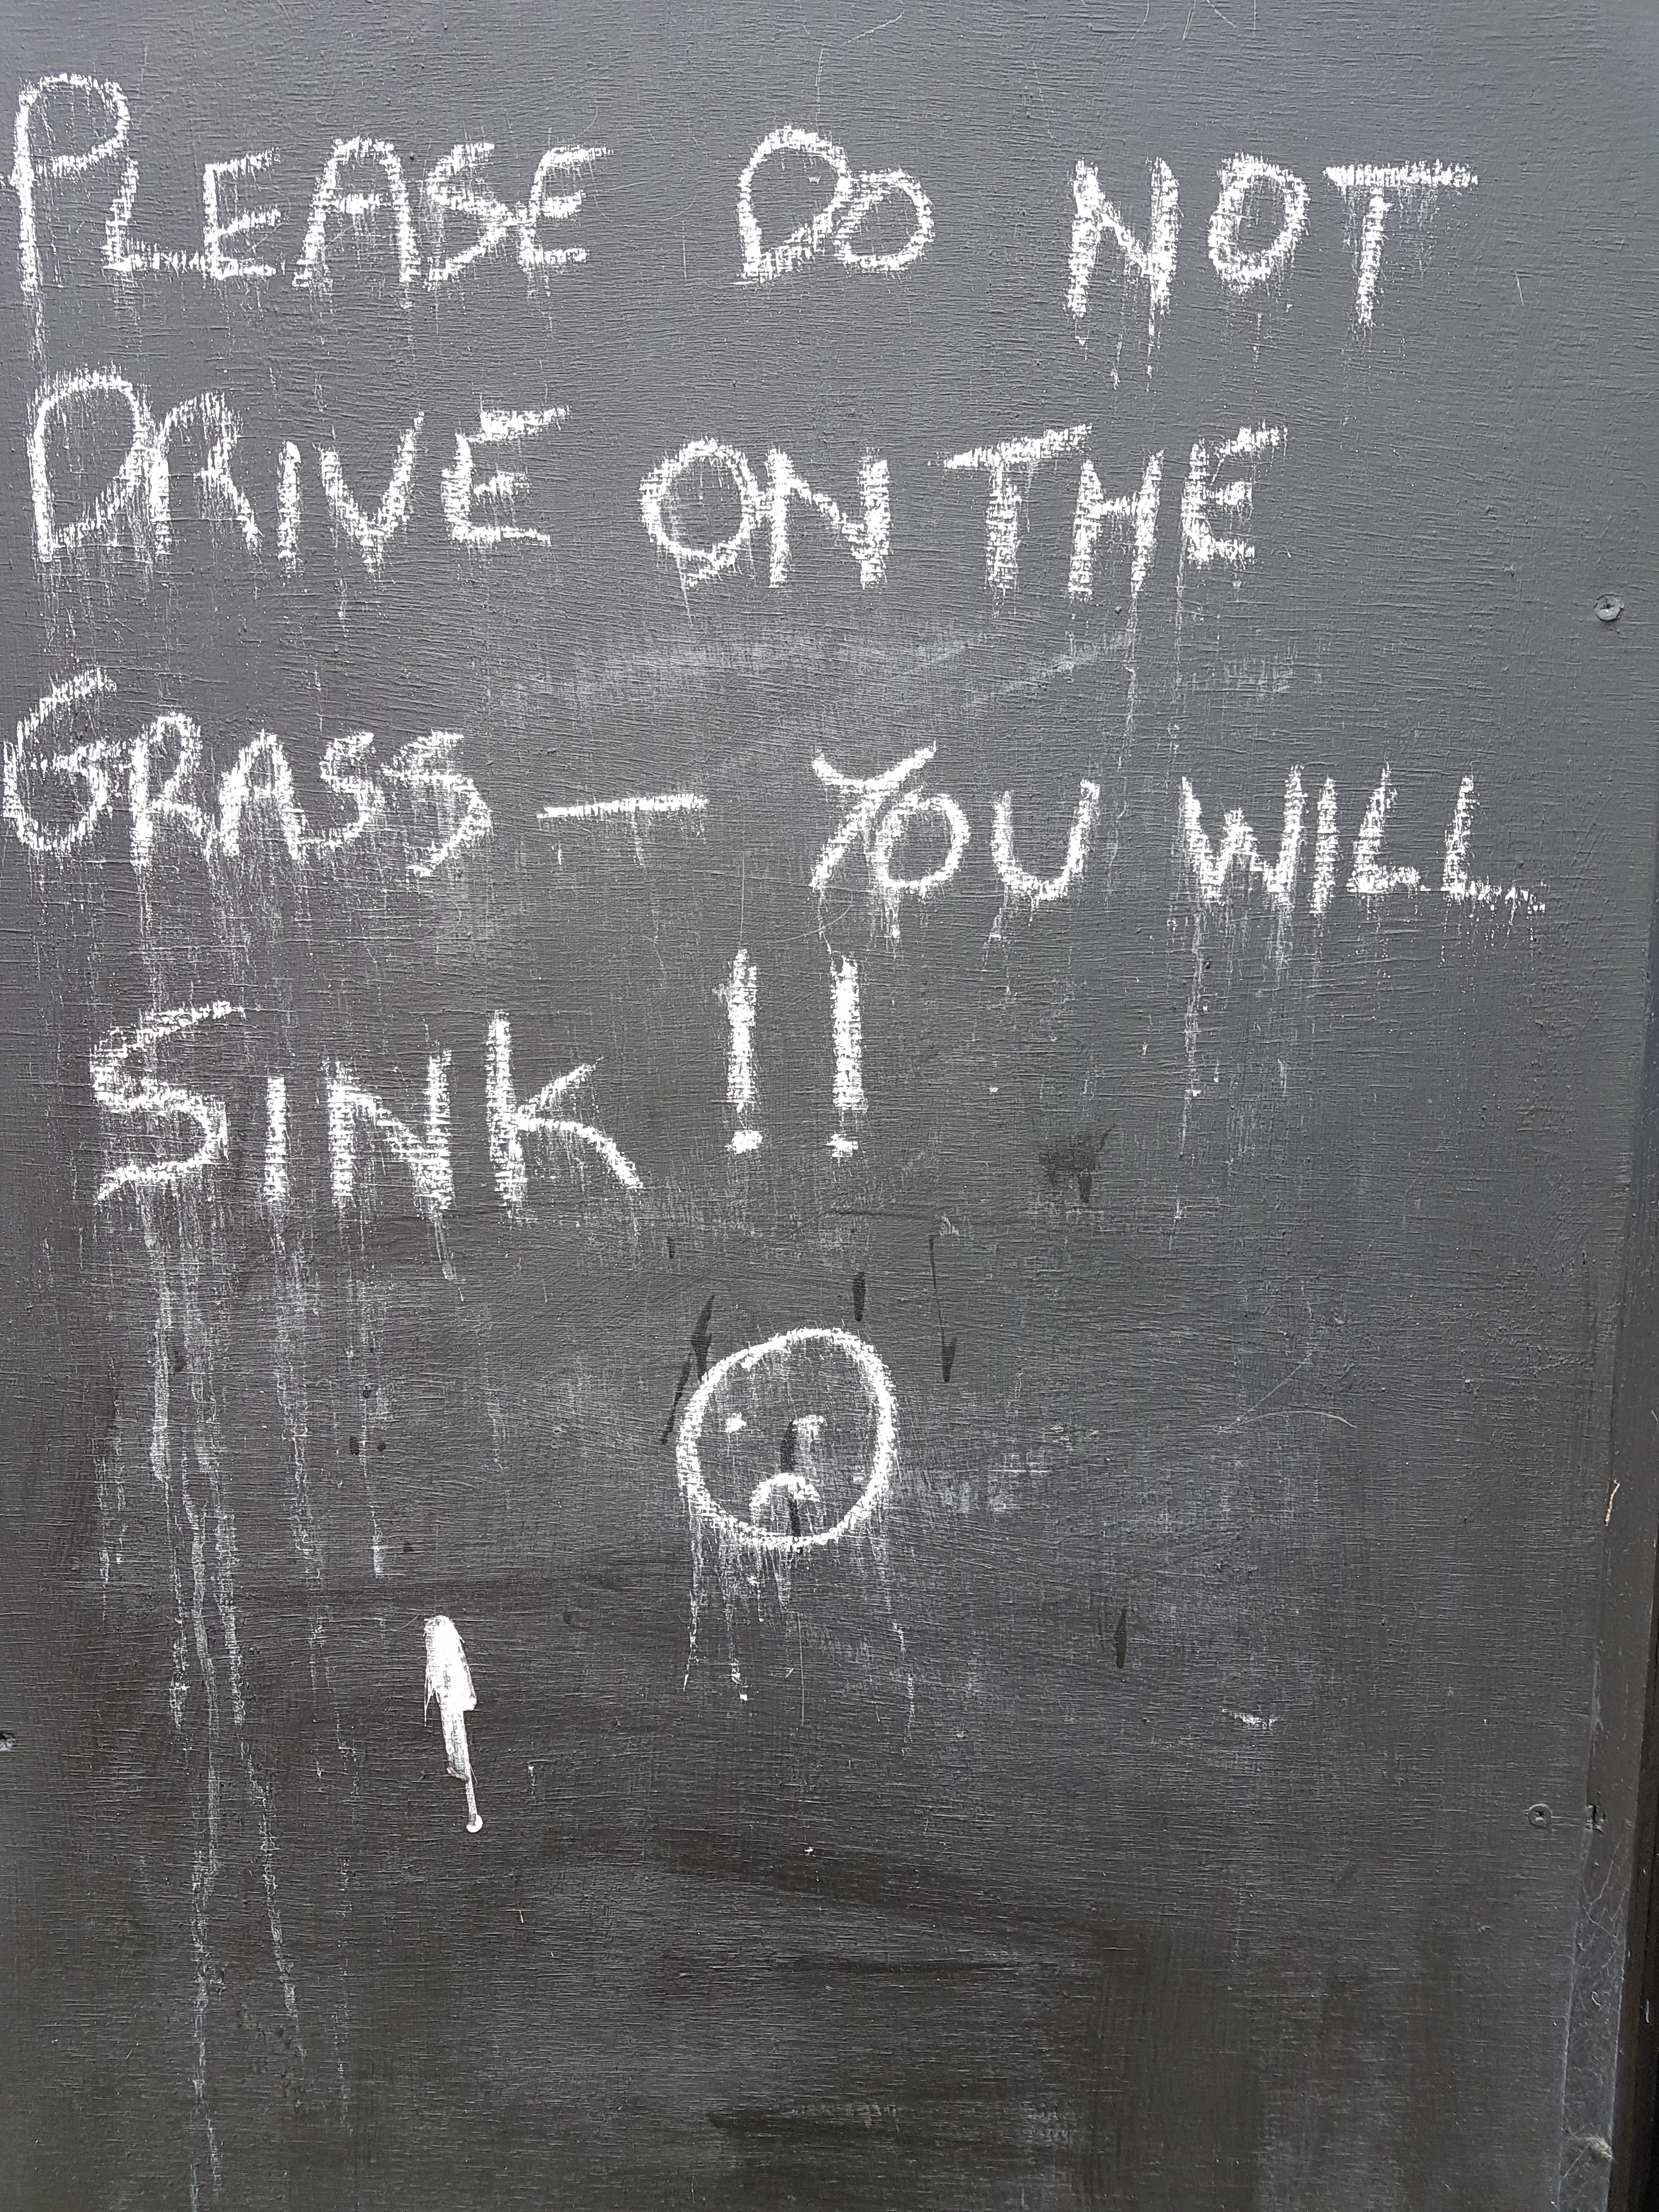 PLEASE DO NOT
DRIVE ON THE
GRASS — YOU WILL
SINK !!